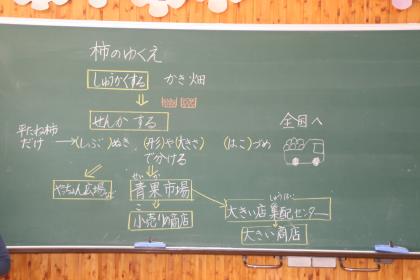 柿のゆくえ
しゅうかくする かき畑
せんかする
平たね柿だけ→(しぶ)ぬき (形)や(大きさ)で分ける (はこ)づめ
全国へ
やっちゃん広場
せいか
青果市場
こ
小売り商店
しゅうはい
大きい店集配センター
大きい商店